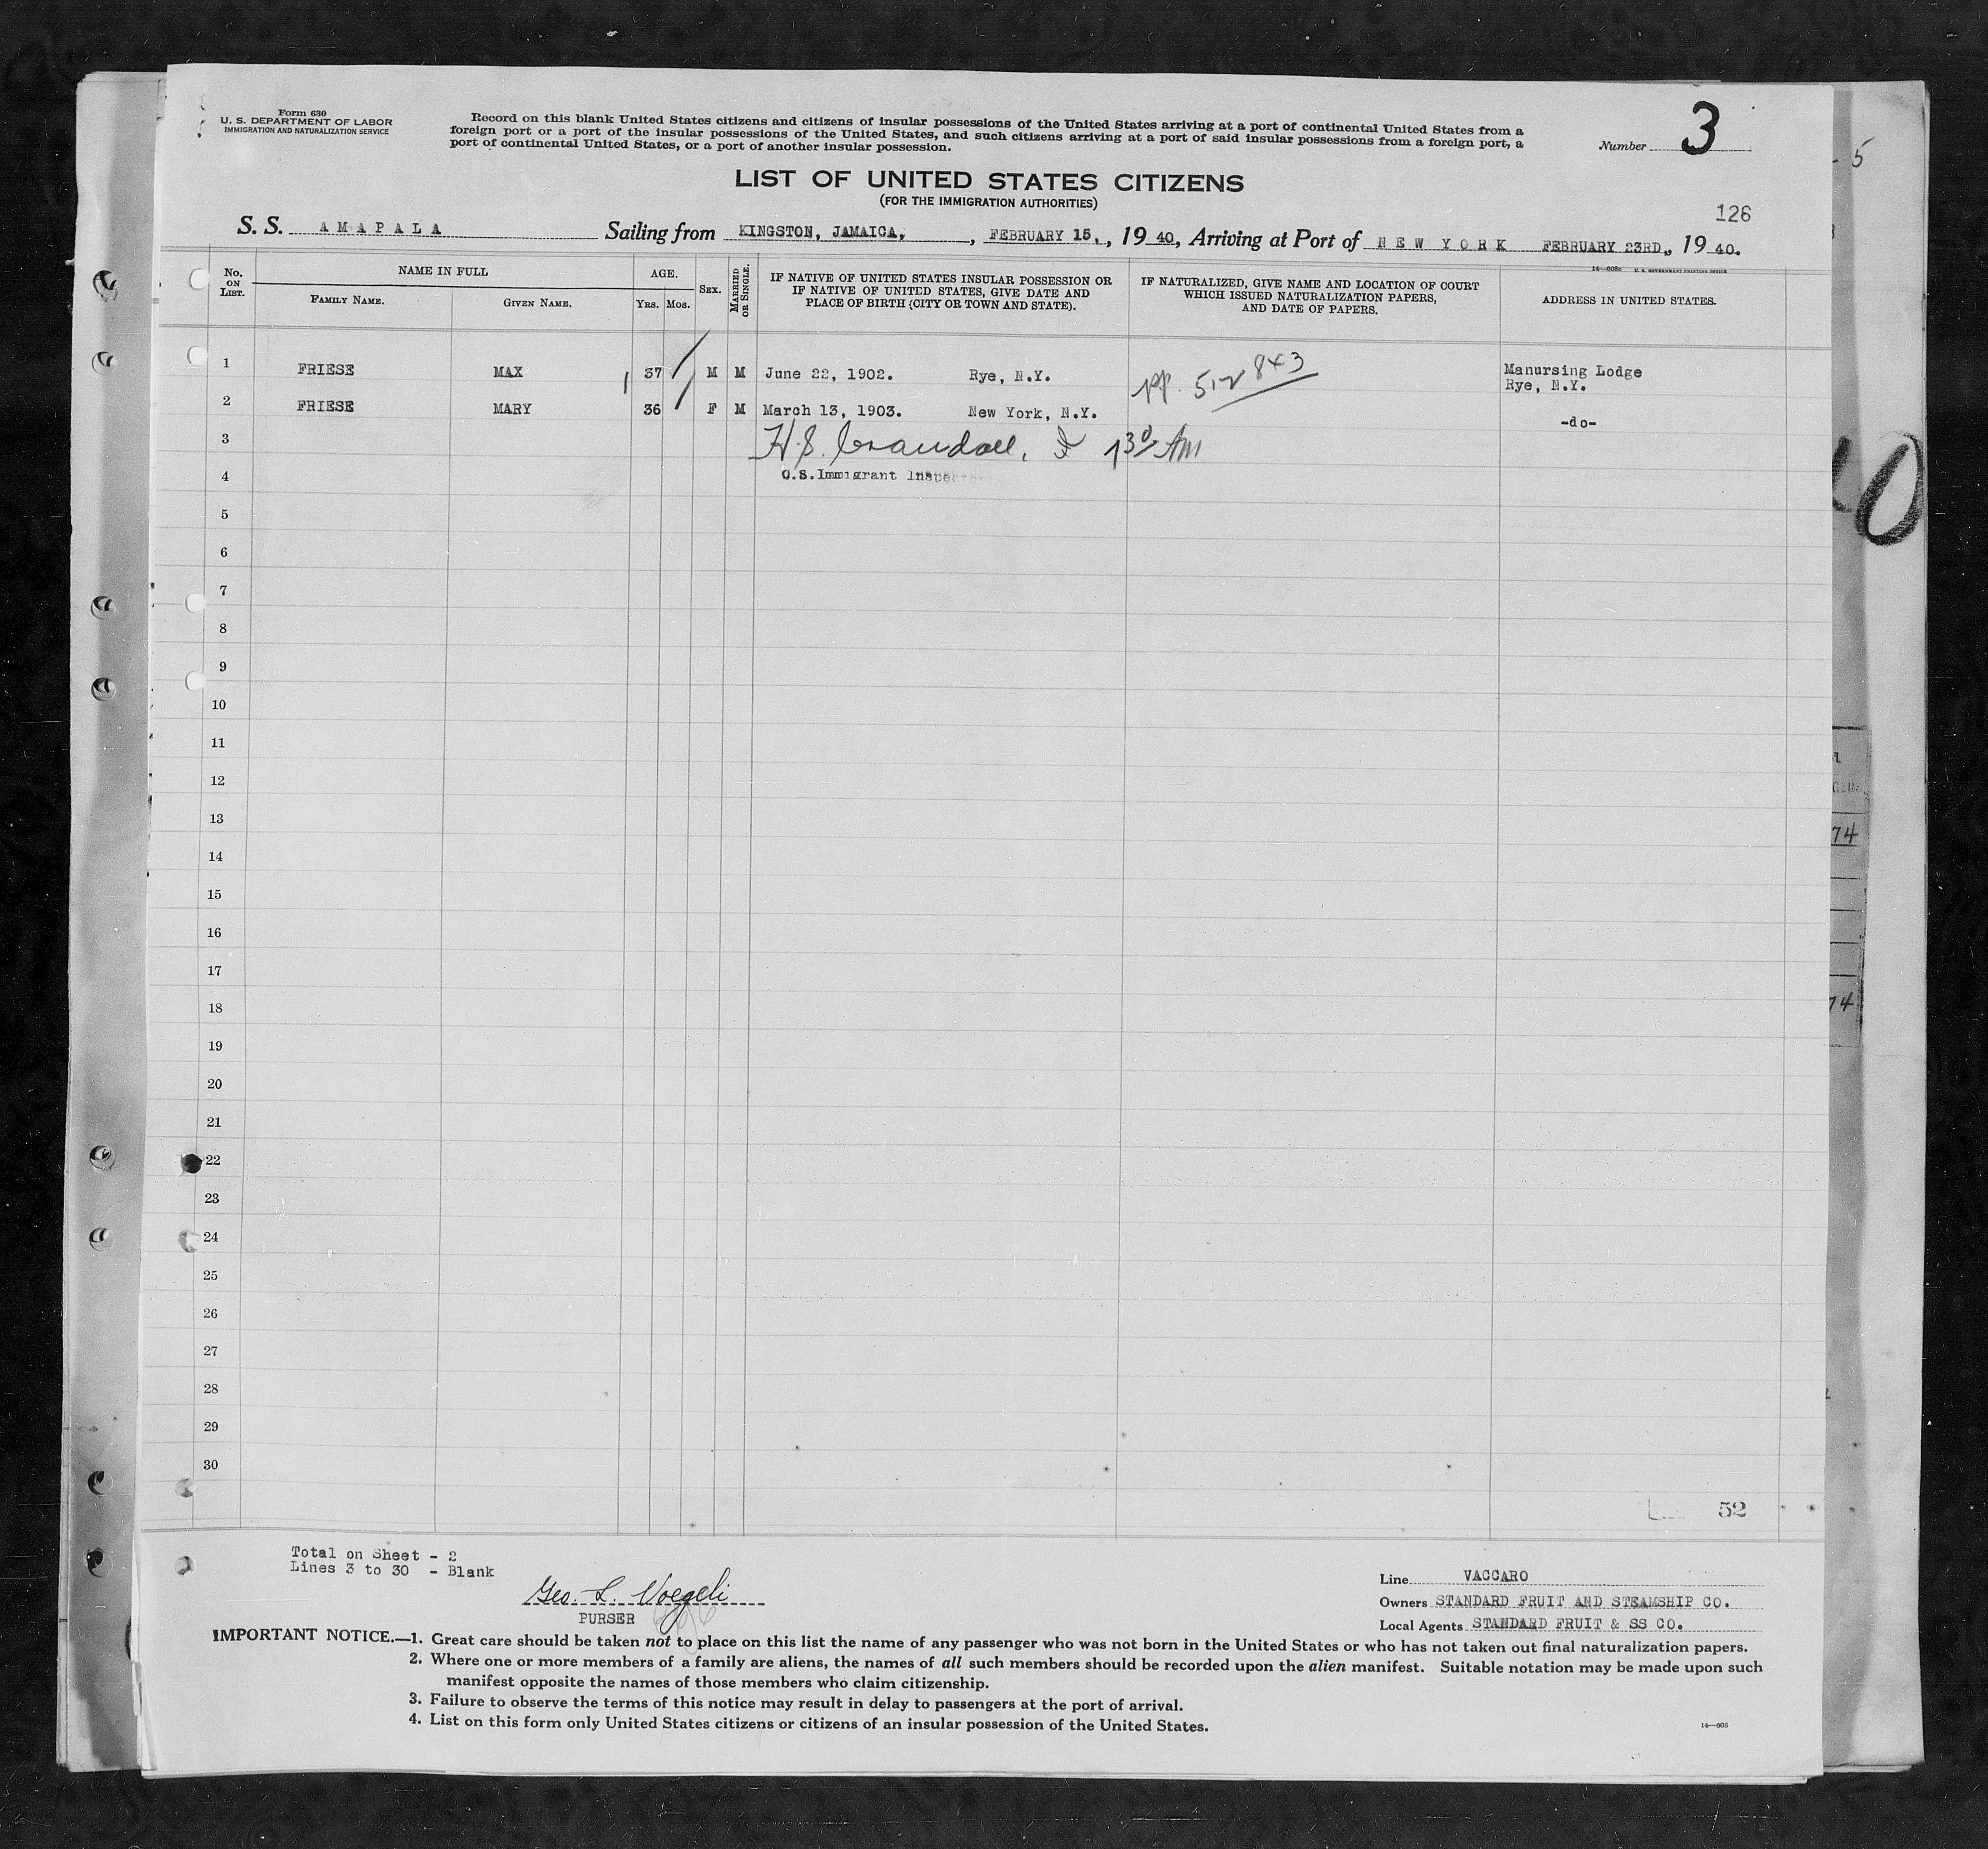 Form 630
U. S. DEPARTMENT OF LABOR
IMMIGRATION AND NATURALIZATION SERVICE
Record on this blank United States citizens and citizens of insular possessions of the United States arriving at a port of continental United States from a
foreign port or a port of the insular possessions of the United States, and such citizens arriving at a port of said insular possessions from a foreign port, a
port of continental United States, or a port of another insular possession.
Number 3
5
LIST OF UNITED STATES CITIZENS
(FOR THE IMMIGRATION AUTHORITIES)
126
S. S. AMAPALA Sailing from KINGSTON, JAMAICA, , FEBRUARY 15, , 19 40, Arriving at Port of NEW YORK FEBRUARY 23RD, , 19 40.
14—608c U. S. GOVERNMENT PRINTING OFFICE
No. ON LIST.
NAME IN FULL
FAMILY NAME.
GIVEN NAME.
AGE.
YRS. MOS.
SEX.
MARRIED OR SINGLE.
IF NATIVE OF UNITED STATES INSULAR POSSESSION OR
IF NATIVE OF UNITED STATES, GIVE DATE AND
PLACE OF BIRTH (CITY OR TOWN AND STATE).
IF NATURALIZED, GIVE NAME AND LOCATION OF COURT
WHICH ISSUED NATURALIZATION PAPERS,
AND DATE OF PAPERS.
ADDRESS IN UNITED STATES.
1 FRIESE MAX 37 M M June 22, 1902. Rye, N.Y. pp. 512843 Manursing Lodge
Rye, N.Y.
2 FRIESE MARY 36 F M March 13, 1903. New York, N.Y. -do-
3 H.S. Crandall, 130 AM
4 U.S. Immigrant Inspector
5
6
7
8
9
10
11
12
13
14
15
16
17
18
19
20
21
22
23
24
25
26
27
28
29
30
52
74
74
Total on Sheet - 2
Lines 3 to 30 - Blank
Geo. L. Voegeli
PURSER
Line VACCARO
Owners STANDARD FRUIT AND STEAMSHIP CO.
Local Agents STANDARD FRUIT & SS CO.
IMPORTANT NOTICE.—1. Great care should be taken not to place on this list the name of any passenger who was not born in the United States or who has not taken out final naturalization papers.
2. Where one or more members of a family are aliens, the names of all such members should be recorded upon the alien manifest. Suitable notation may be made upon such
manifest opposite the names of those members who claim citizenship.
3. Failure to observe the terms of this notice may result in delay to passengers at the port of arrival.
4. List on this form only United States citizens or citizens of an insular possession of the United States.
14—608